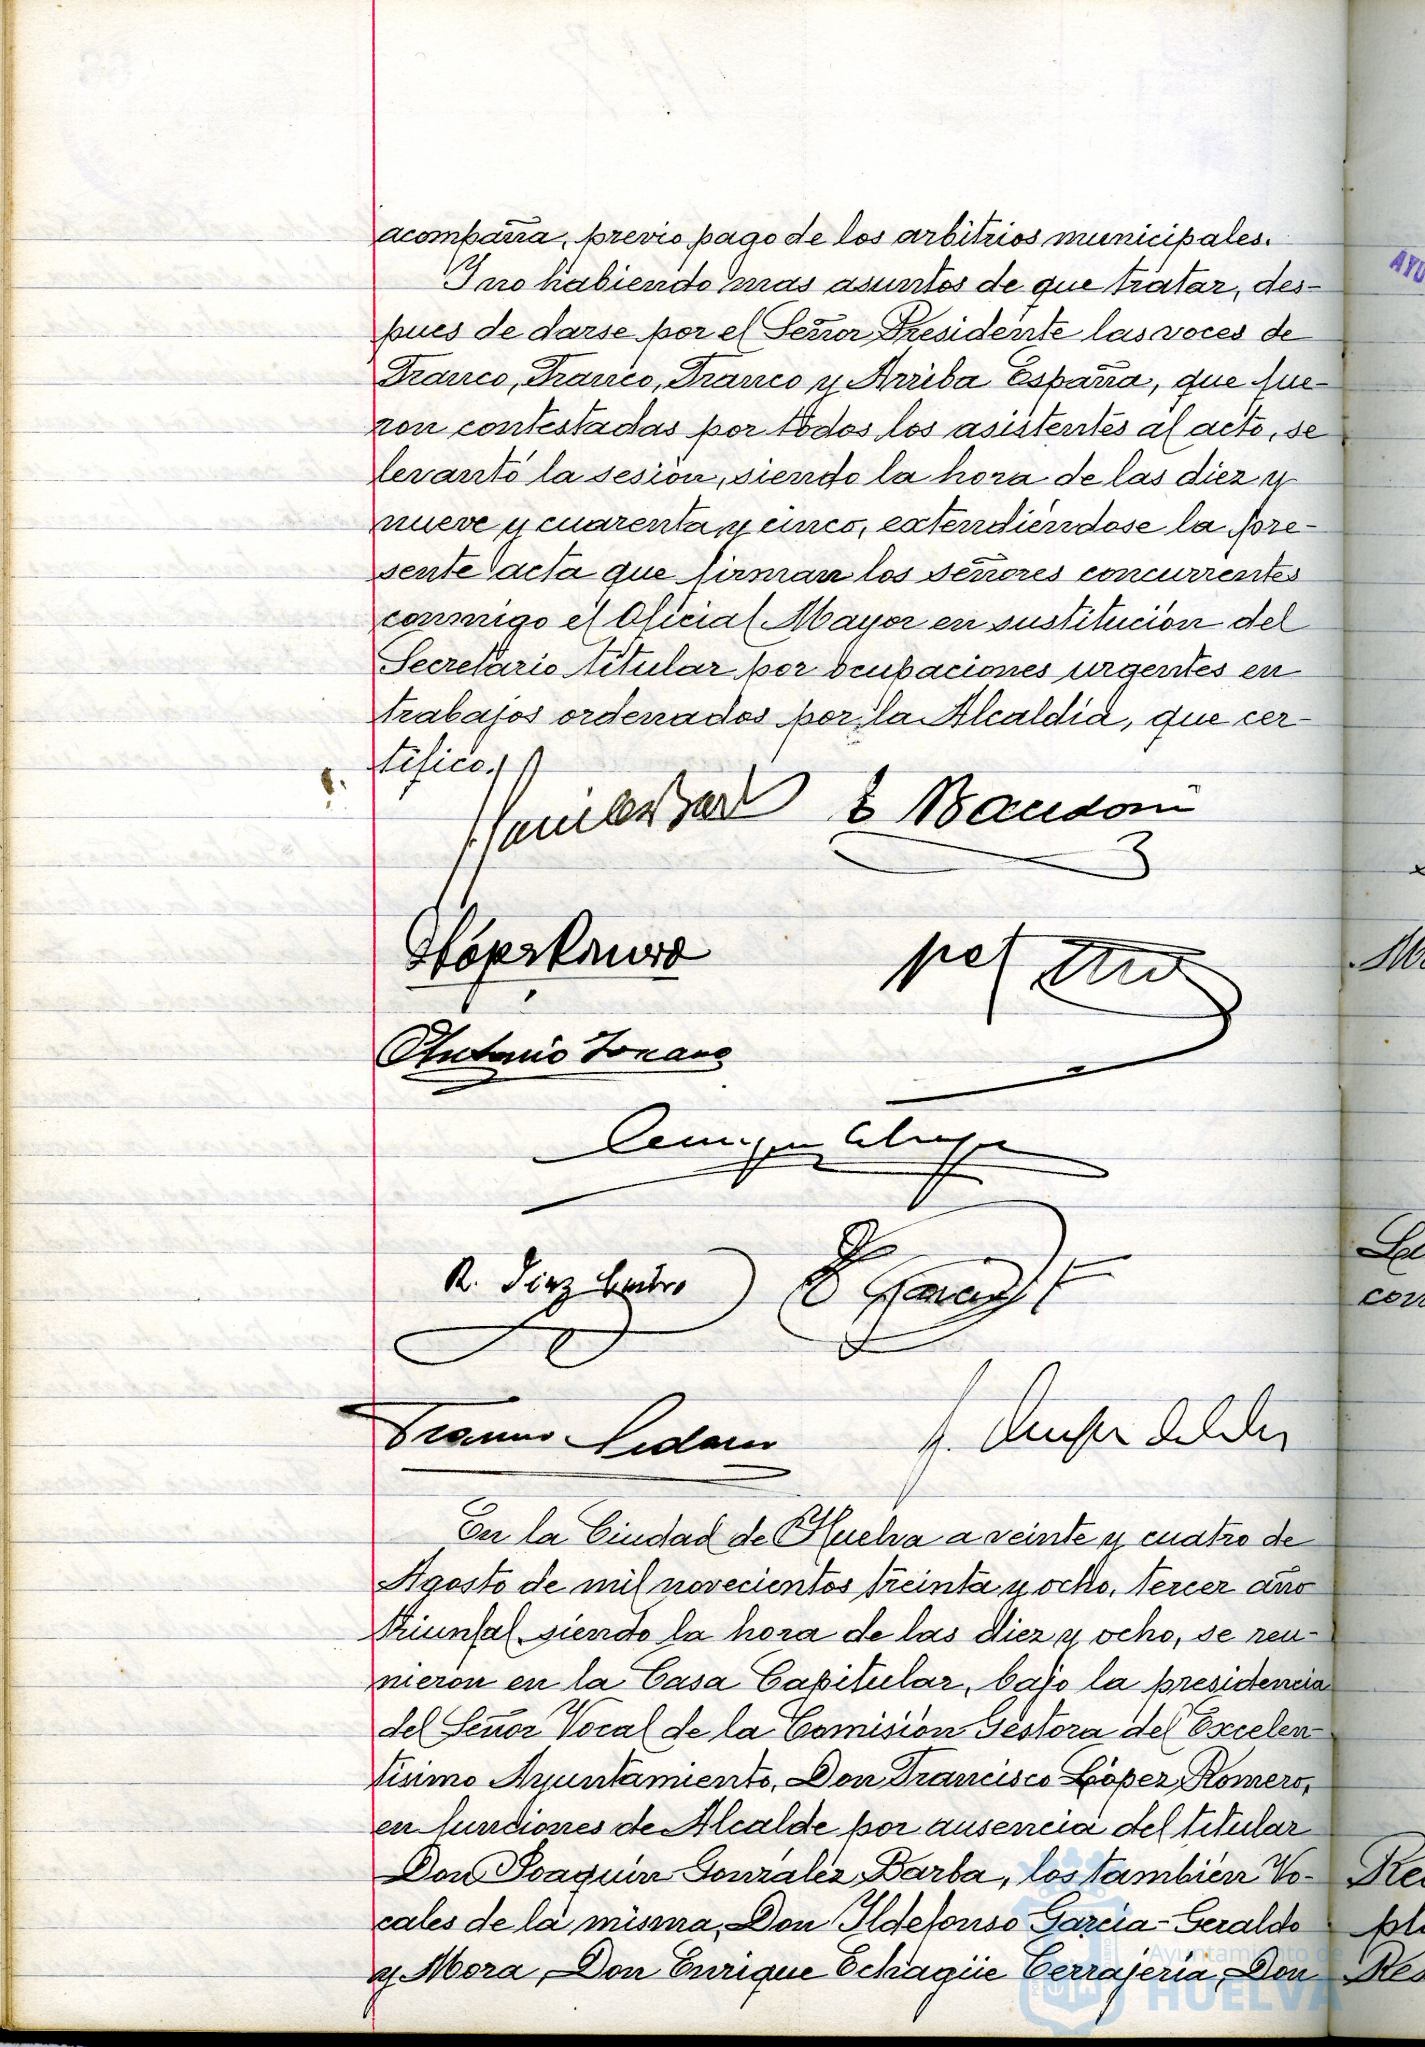 acompaña, previo pago de los arbitrios municipales.
Y no habiendo mas asuntos de que tratar, des-
pues de darse por el Señor Presidente las voces de
Franco, Franco, Franco y Arriba España, que fue-
ron contestadas por todos los asistentes al acto, se
levantó la sesión, siendo la hora de las diez y
nueve y cuarenta y cinco, extendiéndose la pre-
sente acta que firman los señores concurrentes
conmigo el Oficial Mayor en sustitución del
Secretario titular por ocupaciones urgentes en
trabajos ordenados por la Alcaldía, que cer-
tifico.
Antonio
R. Diez
En la Ciudad de Huelva a veinte y cuatro de
Agosto de mil novecientos treinta y ocho, tercer año
triunfal, siendo la hora de las diez y ocho, se reu-
nieron en la Casa Capitular, bajo la presidencia
del Señor Vocal de la Comisión Gestora del Excelen-
tísimo Ayuntamiento, Don Francisco López Romero,
en funciones de Alcalde por ausencia del titular
Don Joaquín González Barba, los también Vo-
cales de la misma, Don Ildefonso García-Geraldo
y Mora, Don Enrique Echagüe Cerrajería, Don
Ayuntamiento de
HUELVA